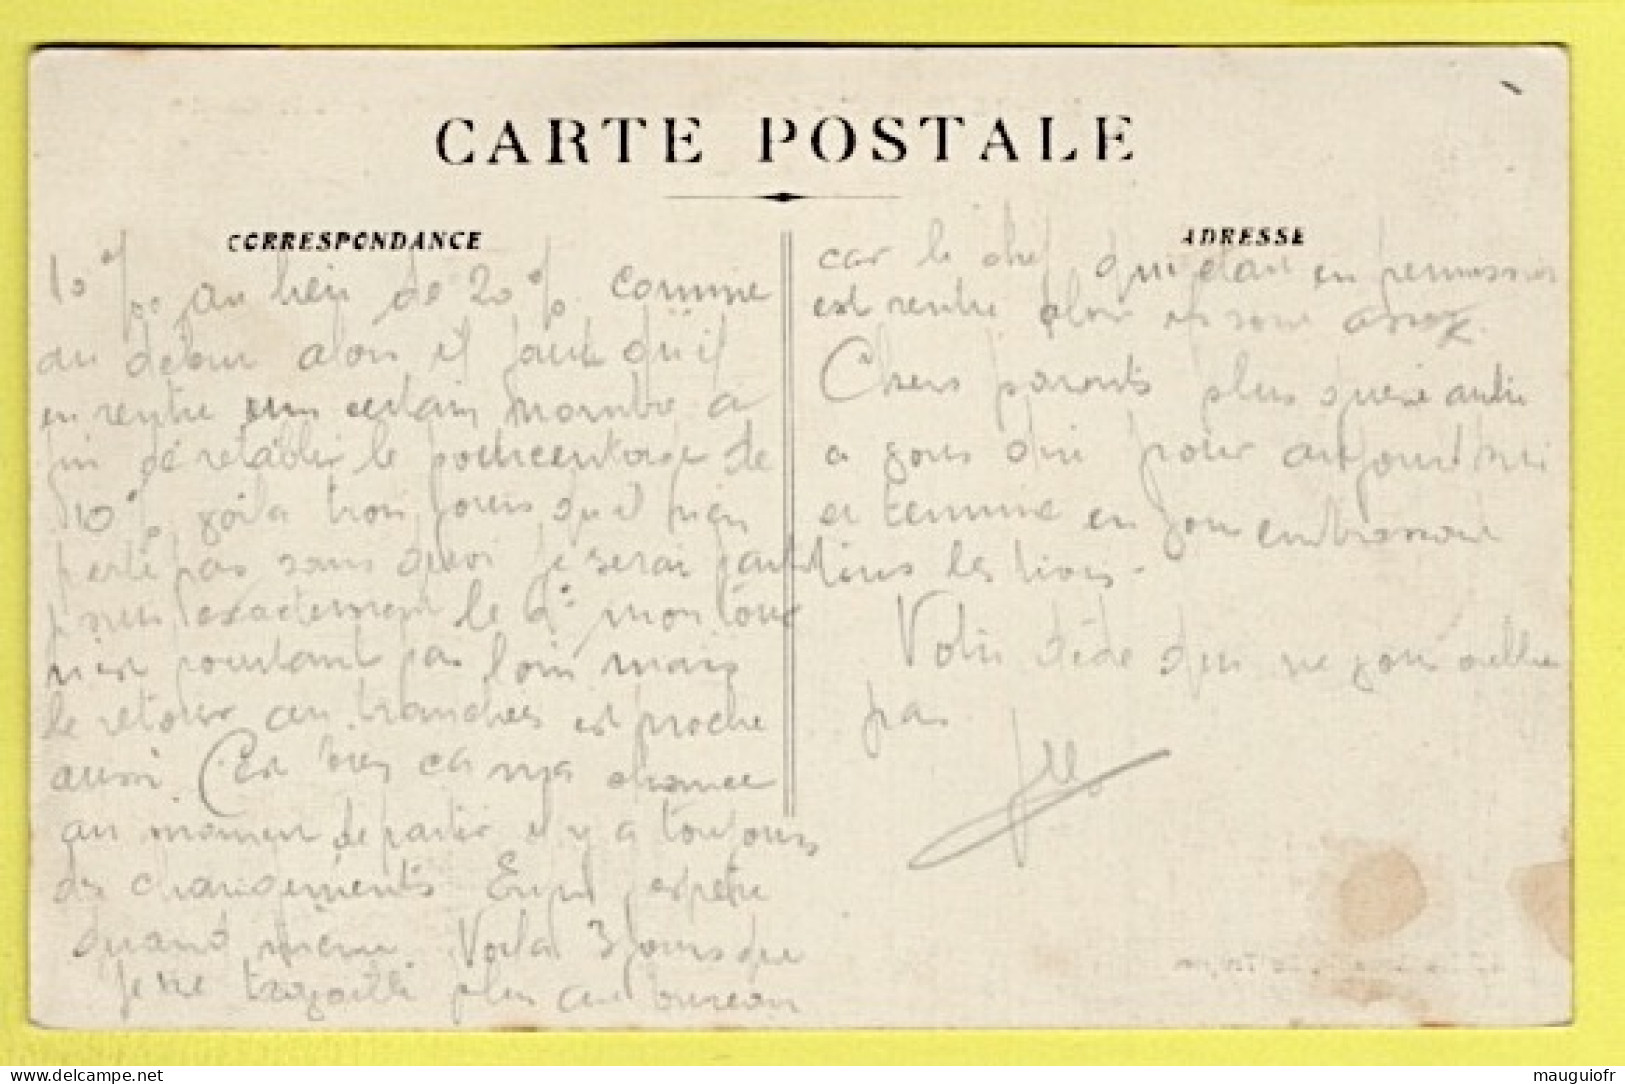 CARTE POSTALE
CORRESPONDANCE
ADRESSE
10 % au lieu de 20 % comme
au début alors il faut qu'il
en rentre un certain nombre a
fin de retablir le pourcentage de
10 % voila trois jours qu'il n'en
parte pas sans quoi je serai parti
exactement le mon tour
n'est pourtant pas loin mais
le retour au tranchées est proche
aussi. C'est bien ça chance
au moment de partir il y a toujours
des changements Enfin espère
quand même. Voila 3 jours que
je ne travaille plus au bureau
car le chef qui était en permission
est rentré alor ils sont assez.
Chers parents plus rien autre
a vous dire pour aujourd'hui
et termine en vous embrassant
tous les trois.
Votre dédé qui ne vous oublie
pas
mauguiofr